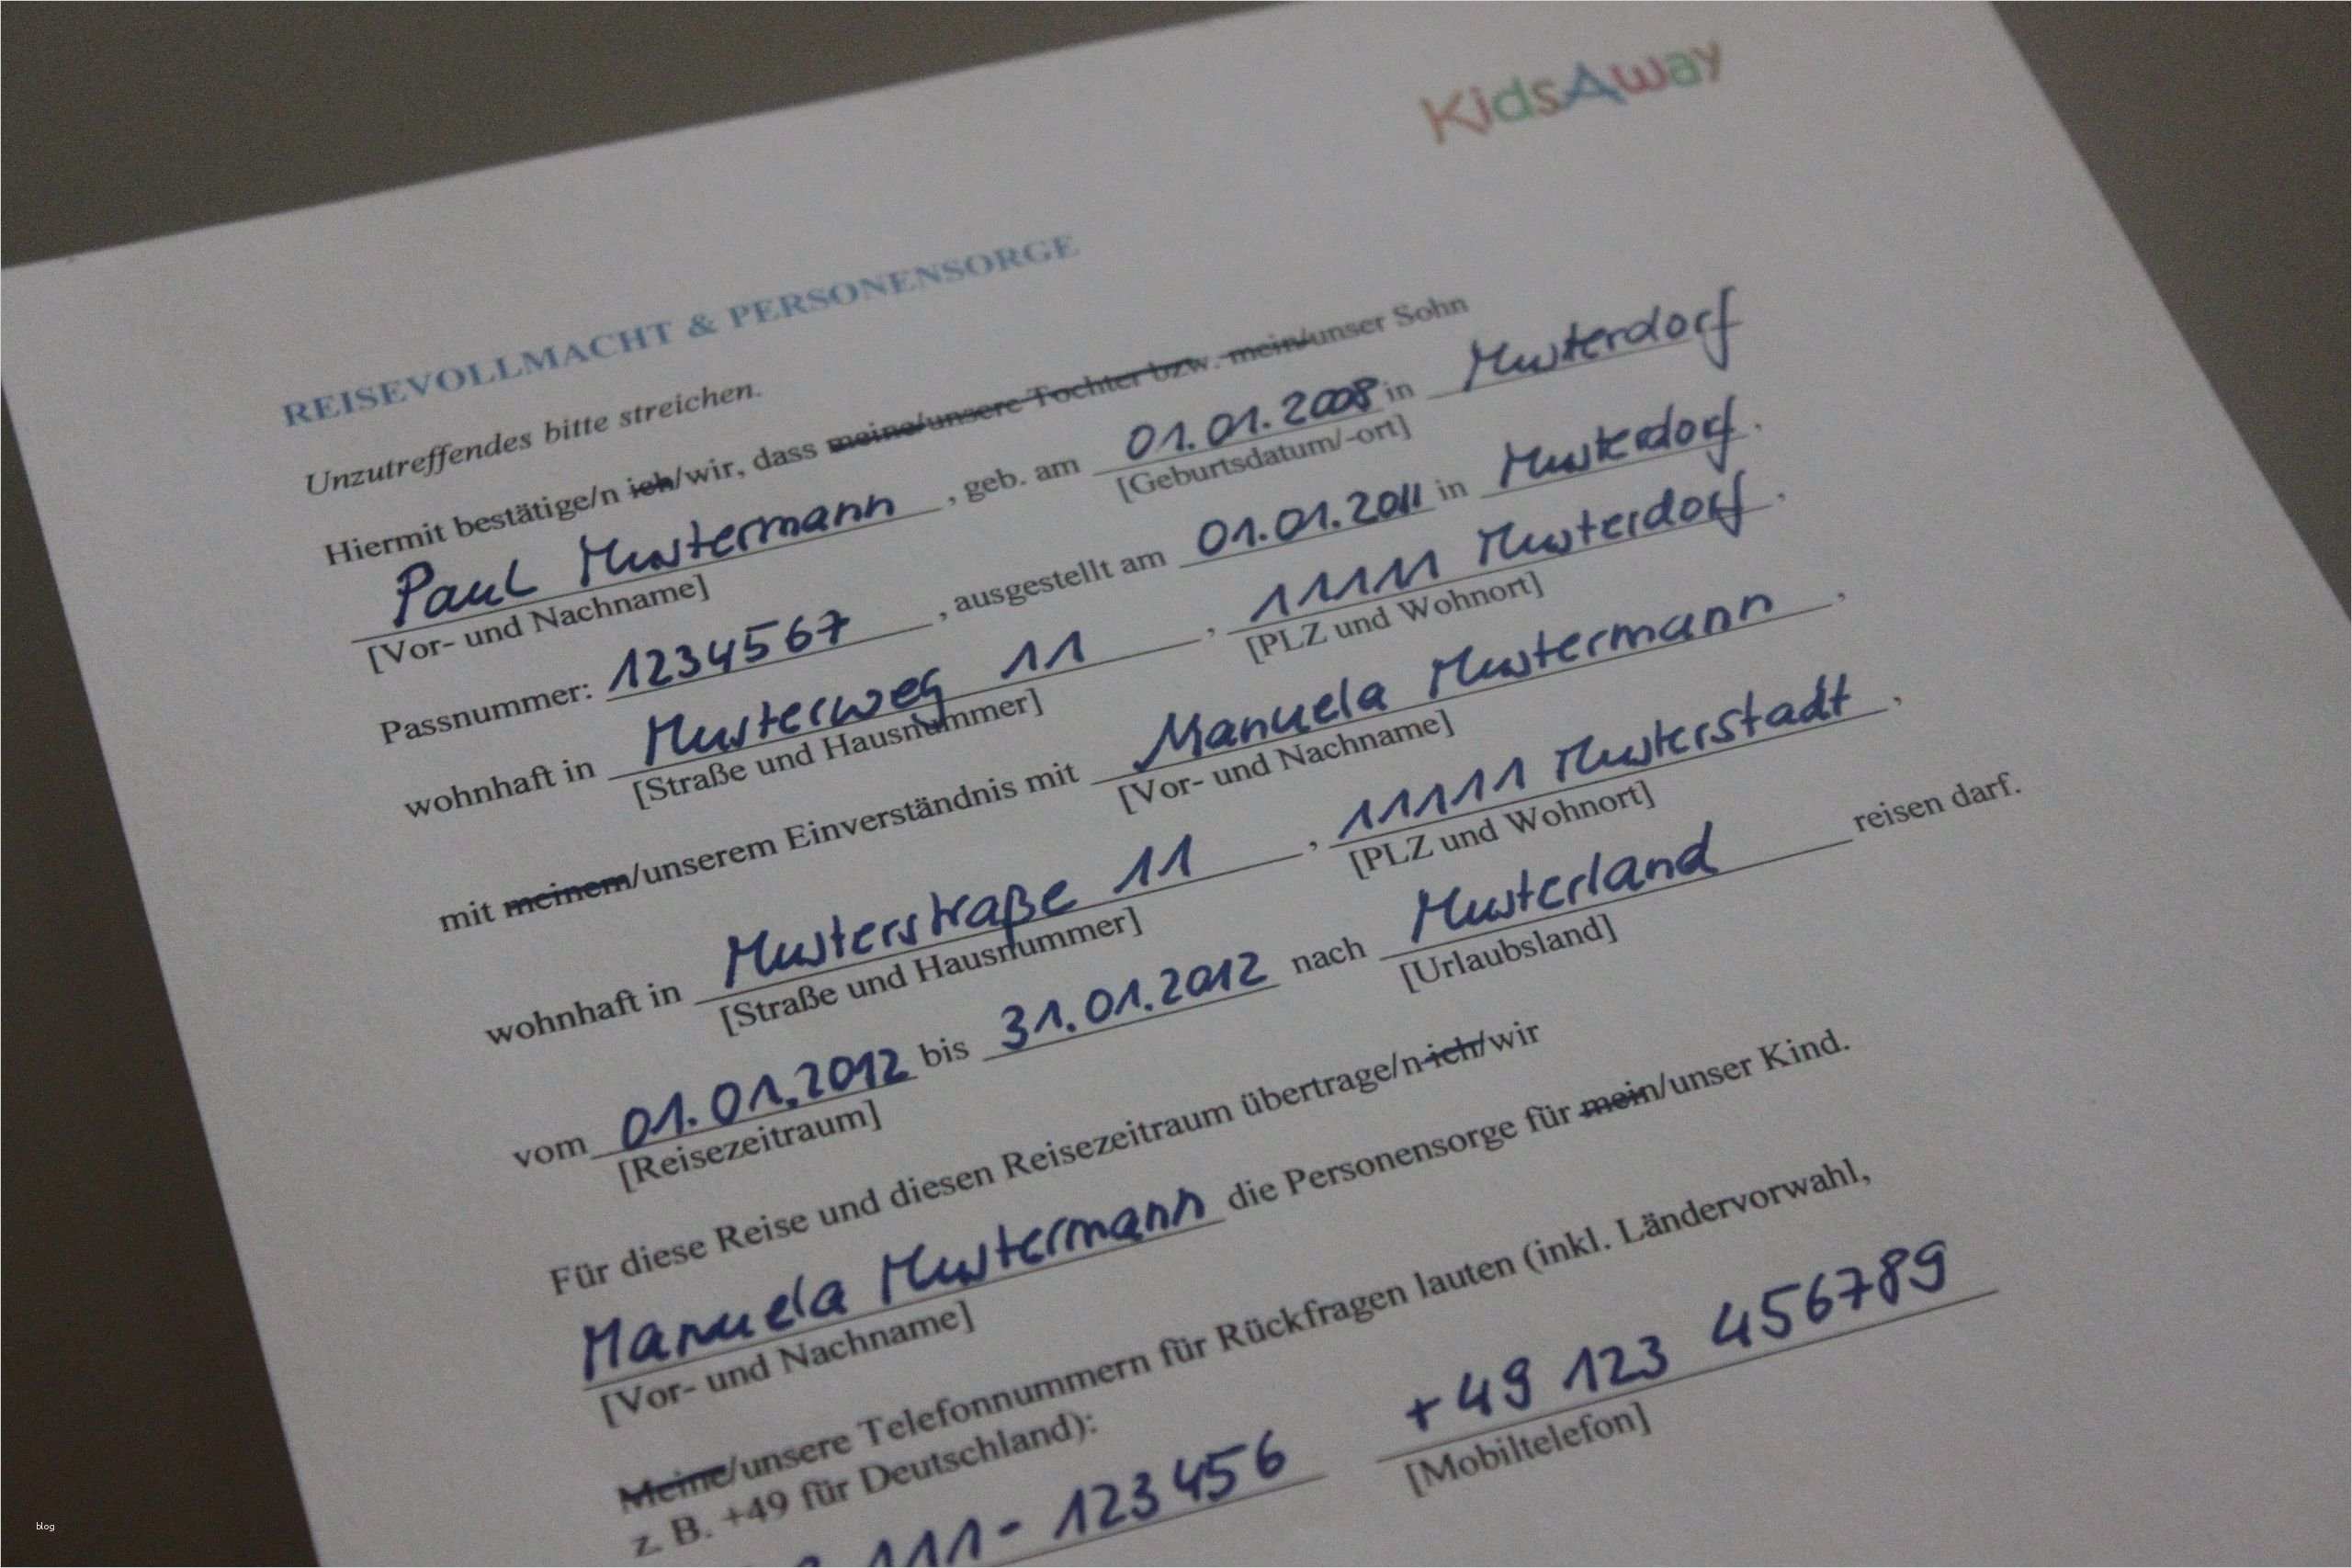 KidsAway
REISEVOLLMACHT & PERSONENSORGE
Unzutreffendes bitte streichen.
Hiermit bestätige/n ich/wir, dass meine/unsere Tochter bzw. mein/unser Sohn
Paul Mustermann, geb. am 01.01.2008 in Musterdorf
[Vor- und Nachname] [Geburtsdatum/-ort]
Passnummer: 1234567, ausgestellt am 01.01.2011 in Musterdorf,
wohnhaft in Musterweg 11, 11111 Musterdorf,
[Straße und Hausnummer] [PLZ und Wohnort]
mit meinem/unserem Einverständnis mit Manuela Mustermann,
[Vor- und Nachname]
wohnhaft in Musterstraße 11, 11111 Musterstadt,
[Straße und Hausnummer] [PLZ und Wohnort]
vom 01.01.2012 bis 31.01.2012 nach Musterland reisen darf.
[Reisezeitraum] [Urlaubsland]
Für diese Reise und diesen Reisezeitraum übertrage/n ich/wir
Manuela Mustermann die Personensorge für mein/unser Kind.
[Vor- und Nachname]
Meine/unsere Telefonnummern für Rückfragen lauten (inkl. Ländervorwahl,
z. B. +49 für Deutschland):
111-123456 +49 123 456789
[Mobiltelefon]
blog